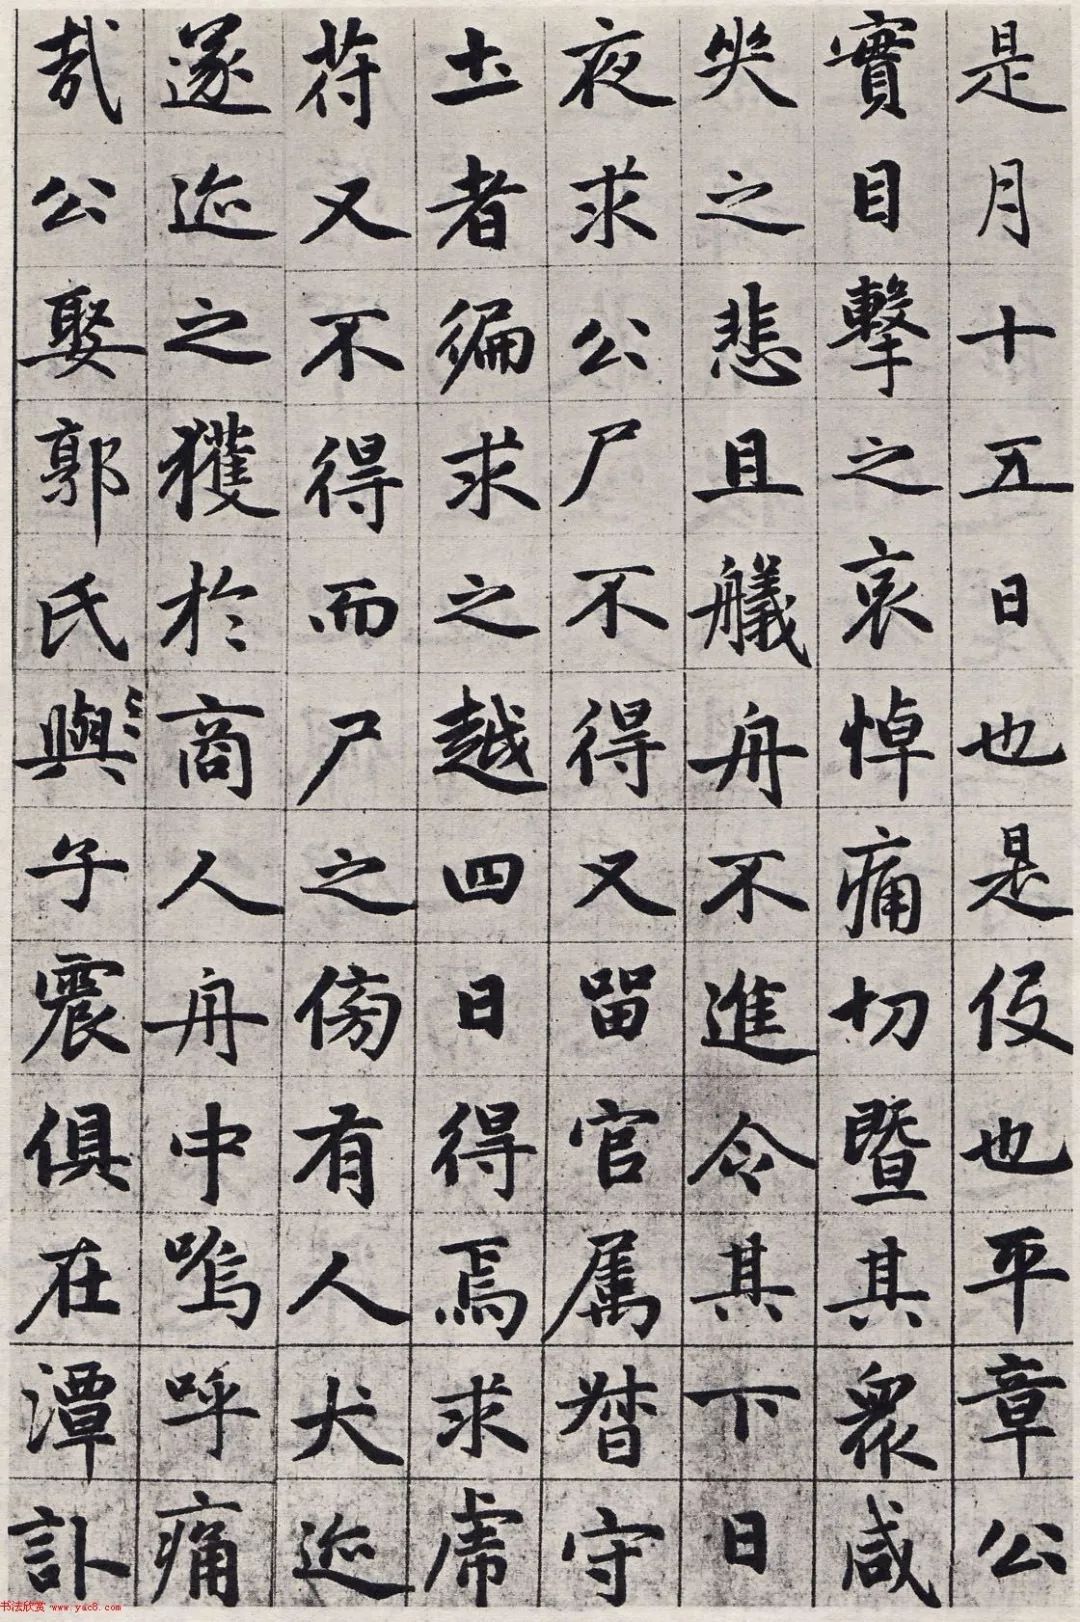 是月十五日也是役也平章公
實目擊之哀悼痛切暨其衆咸
失之悲且艤舟不進令其下日
夜求公尸不得又留官属督守
土者徧求之越四日得焉求虏
苻又不得而尸之傍有人犬迹
遂迹之獲於商人舟中嗚呼痛
哉公娶郭氏與子震俱在潭訃
书法欣赏 www.yac8.com